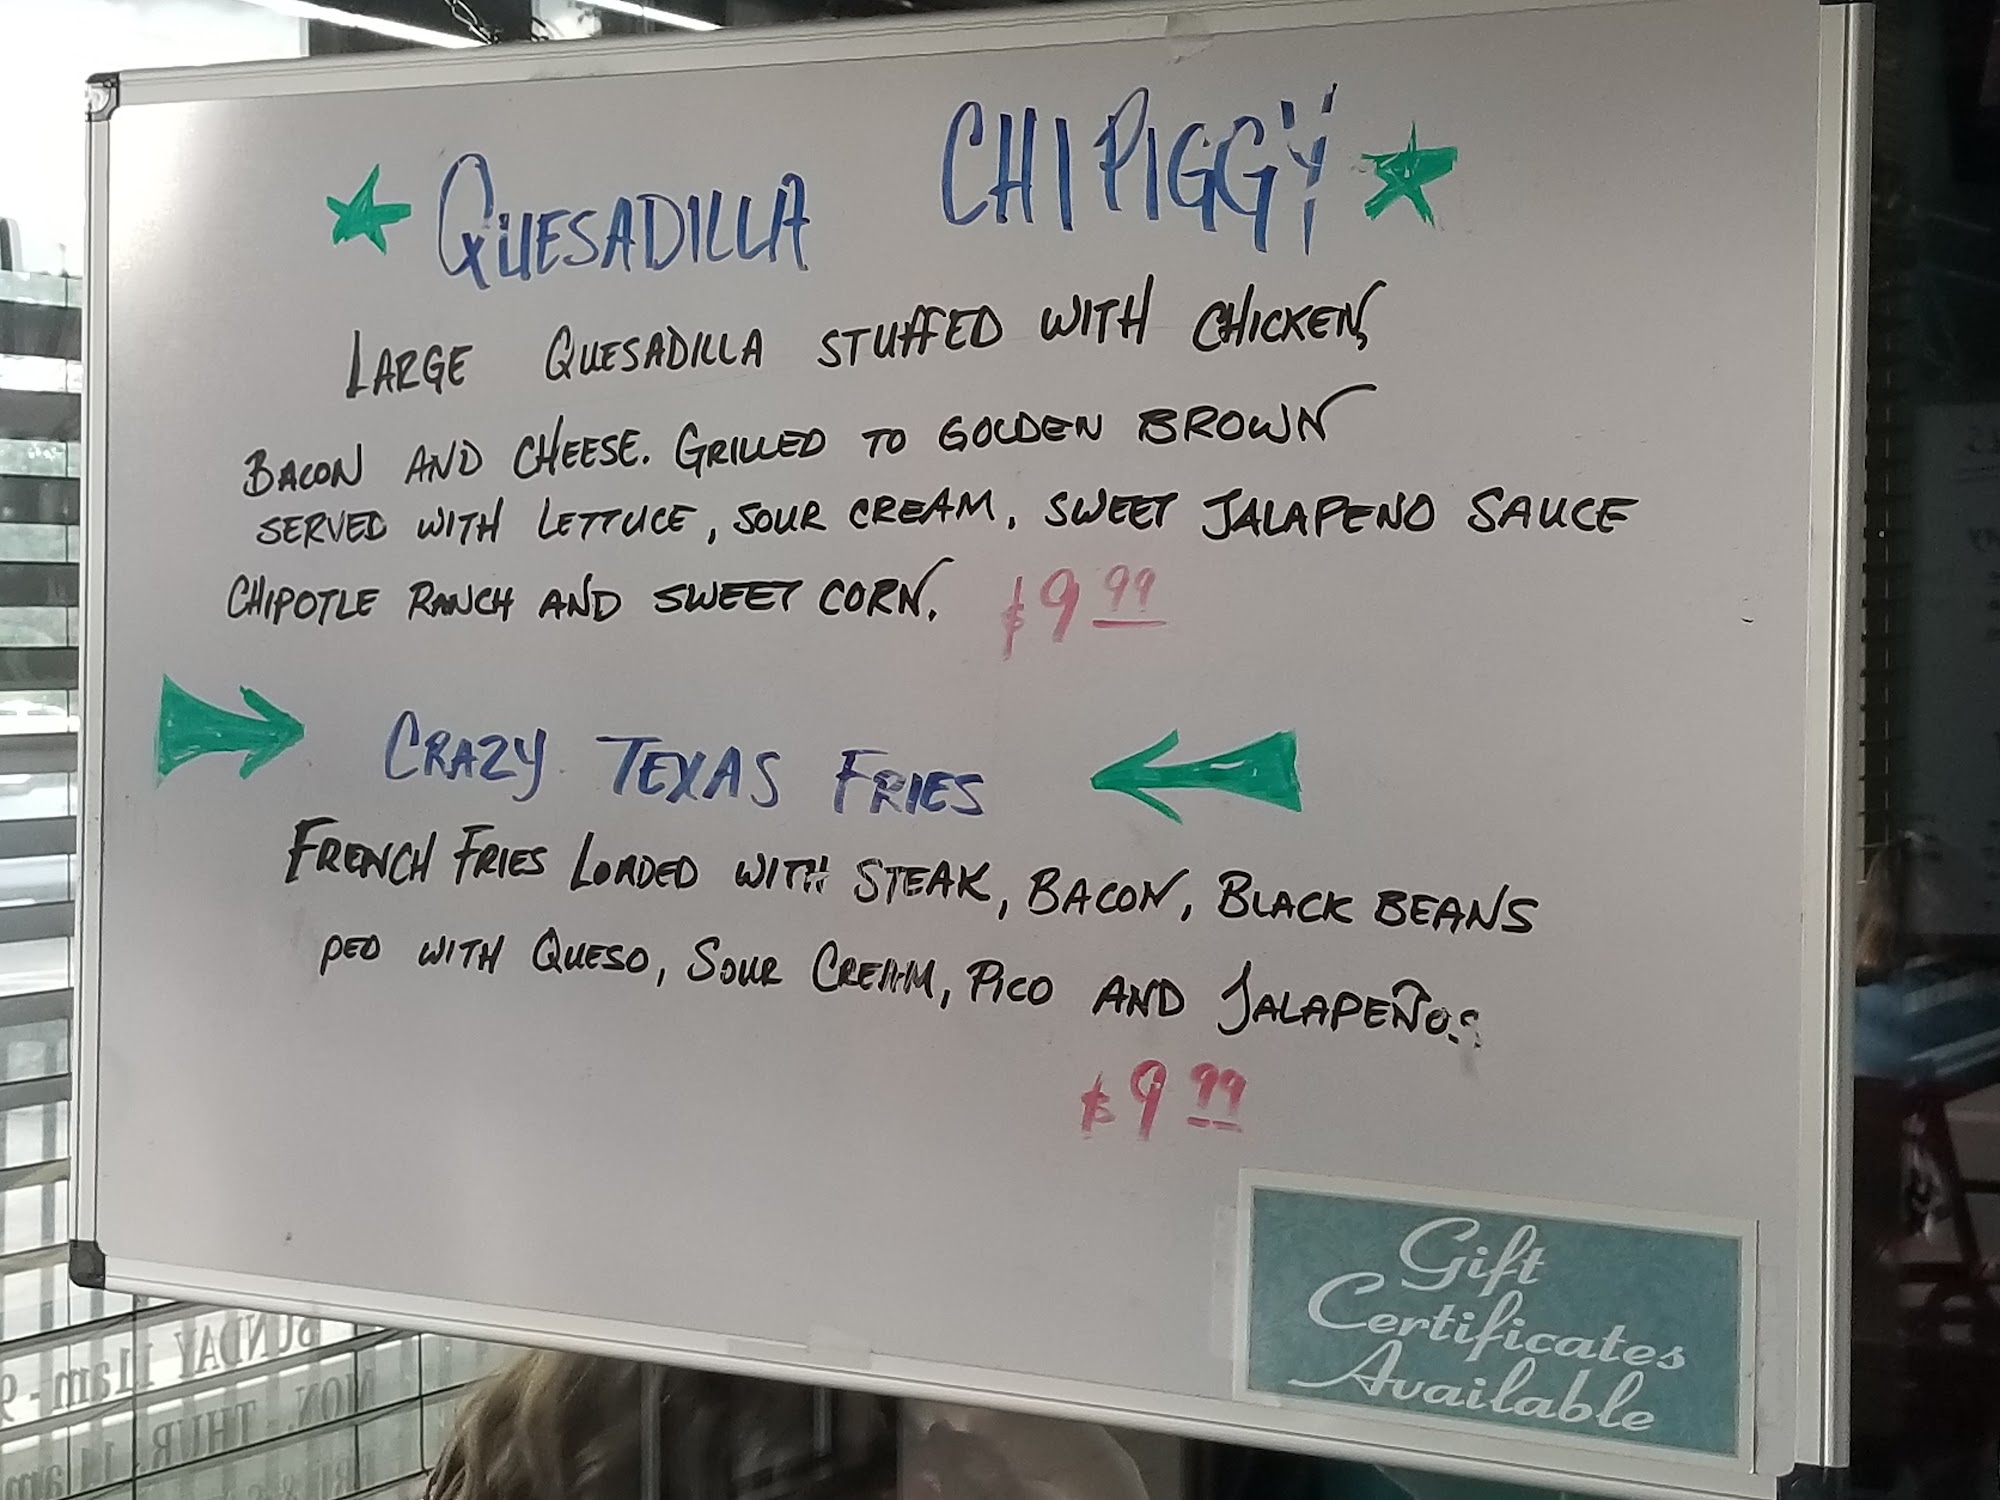 QUESADILLA CHIPIGGY
LARGE QUESADILLA STUFFED WITH CHICKEN,
BACON AND CHEESE. GRILLED TO GOLDEN BROWN
SERVED WITH LETTUCE, SOUR CREAM, SWEET JALAPENO SAUCE
CHIPOTLE RANCH AND SWEET CORN. $9.99
CRAZY TEXAS FRIES
FRENCH FRIES LOADED WITH STEAK, BACON, BLACK BEANS
PED WITH QUESO, SOUR CREAM, PICO AND JALAPEÑOS
$9.99
Gift
Certificates
Available
SUNDAY 11am - 9
MON. - THUR. 11am